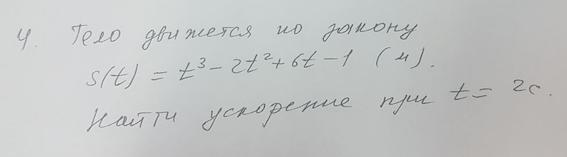 4. Тело движется по закону
s(t) = t³ - 2t² + 6t - 1 (м).
Найти ускорение при t = 2с.